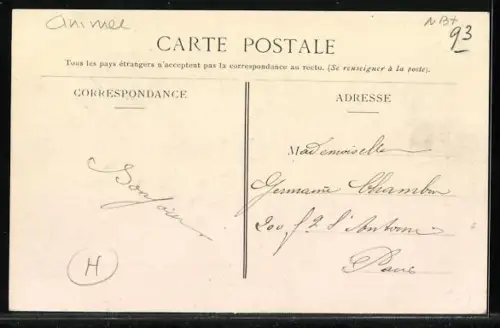 animée
93
CARTE POSTALE
Tous les pays étrangers n'acceptent pas la correspondance au recto. (Se renseigner à la poste).
CORRESPONDANCE
Bonjour
H
ADRESSE
Mademoiselle
Germaine
200, f g S^t Antoine
Paris